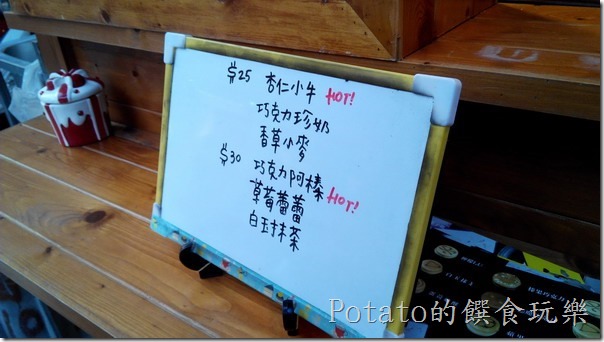 $25 杏仁小牛 HOT!
巧克力珍奶
香草小麥
$30 巧克力阿榛
草莓蕾蕾 HOT!
白玉抹茶
Potato的饌食玩樂